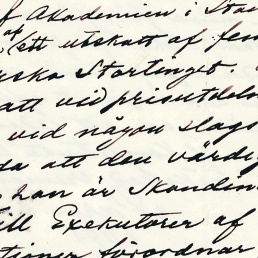 f Akademien i Sto
af
ett utskott af fem
rska Stortinget.
att vid prisutdeln
vid någon slags
da att den värdig
han är Skandin
till Exekutorer af
tioner förordnar